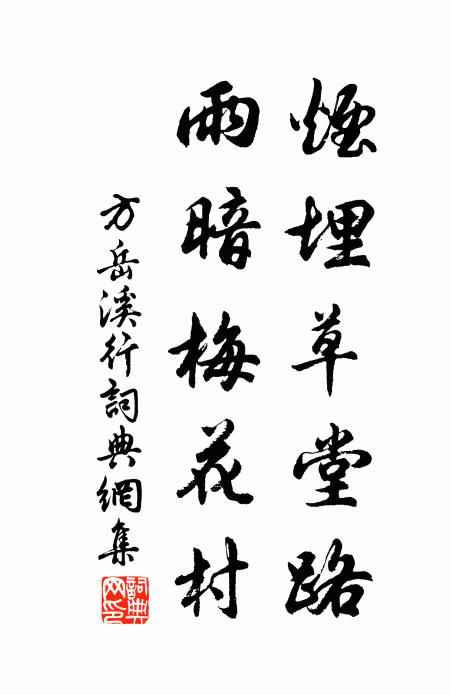 煙埋草堂路
雨暗梅花村
方岳溪行詞典網集
詞典網印